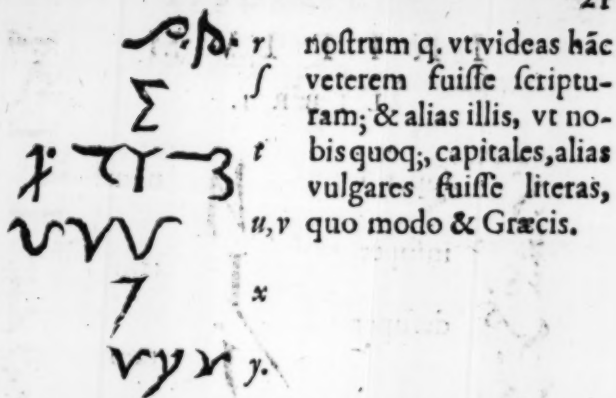 21
r noſtrum q. vt videas hãc
ſ veterem fuiſſe ſcriptu-
ram; & alias illis, vt no-
t bis quoq;, capitales, alias
vulgares fuiſſe literas,
u, v quo modo & Græcis.
x
y.